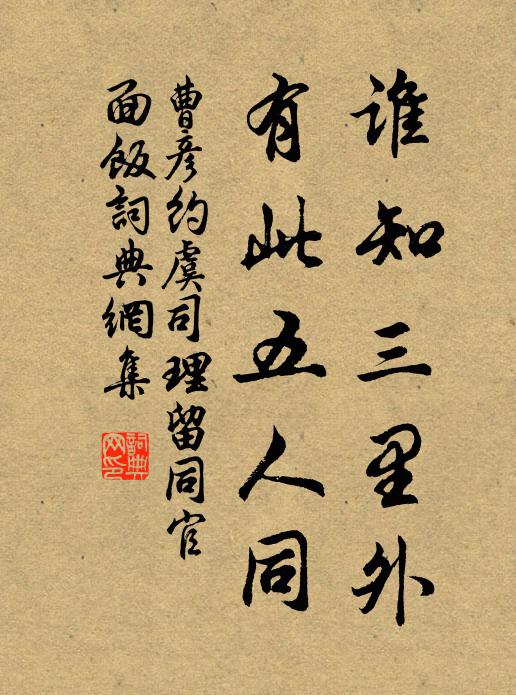 谁知三里外
有此五人同
曹彦约虞司理留同官
面饭詞典網集
詞典网印